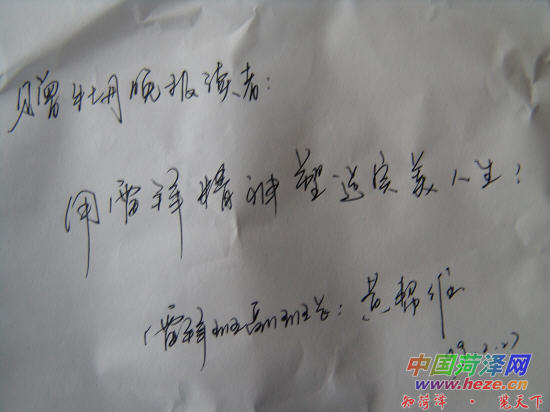 赠牡丹晚报读者:
用雷锋精神塑造完美人生!
雷锋班班长:黄帮维
09.2.27
中国菏泽网
www.heze.cn
知菏泽·览天下